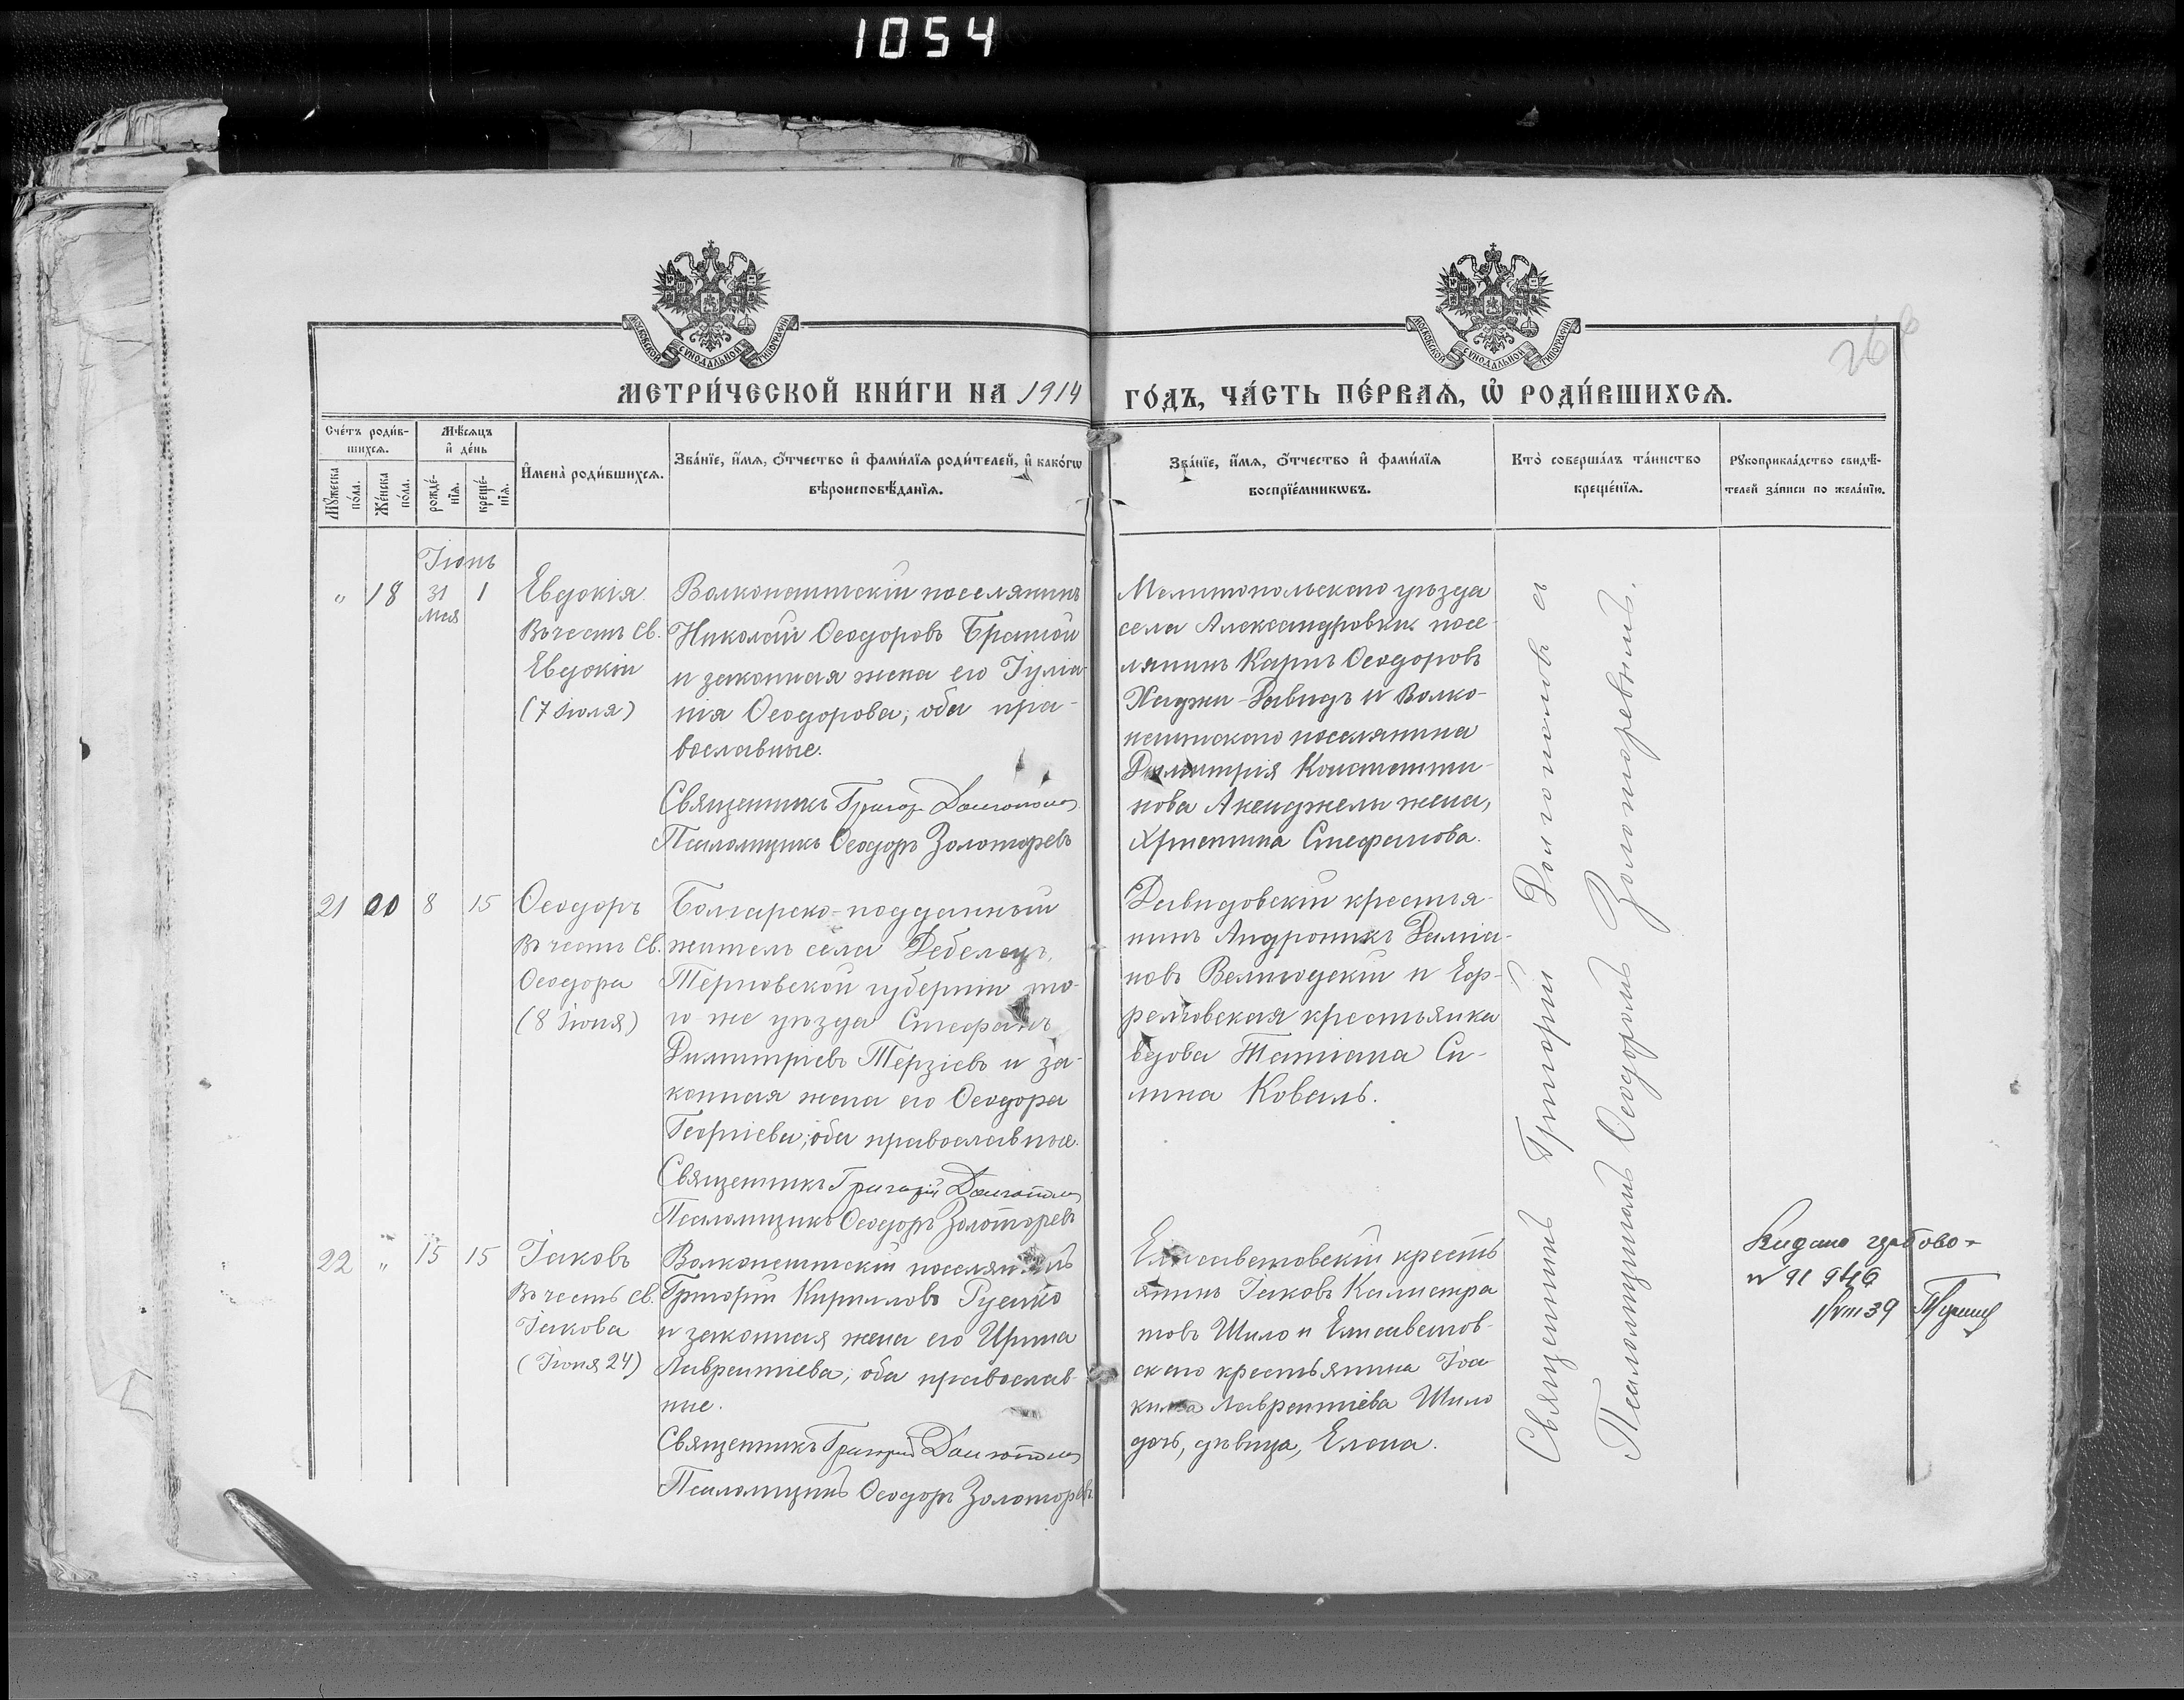 1054
МОСКОВСКОЙ СѴНОДАЛЬНОЙ ТИПОГРАФІИ
МОСКОВСКОЙ СѴНОДАЛЬНОЙ ТИПОГРАФІИ
26
МЕТРИ́ЧЕСКОЙ КНИ́ГИ НА 1914 ГО́ДЪ, ЧА́СТЬ ПЕ́РВАѦ, Ѡ҆ РОДИ́ВШИХСѦ.
Сче́тъ роди́в-
шихсѧ.
Мꙋ́жеска по́ла.
Же́нска по́ла.
Мѣ́сѧцъ
и҆ де́нь
рожде́-
нїѧ.
креще́-
нїѧ.
И҆мена̀ роди́вшихсѧ.
Зва́нїе, и҆́мѧ, ѻ҆́тчество и҆ фами́лїѧ роди́телей, и҆ како́гѡ
вѣроисповѣ́данїѧ.
Зва́нїе, и҆́мѧ, ѻ҆́тчество и҆ фами́лїѧ
воспрїе́мникѡвъ.
Кто̀ соверша́лъ та́инство
креще́нїѧ.
Рꙋкоприкла́дство свидѣ́-
телей за́писи по жела́нїю.
Іюнь
" 18 31 мая 1
Евдокія
Въ честь Св.
Евдокіи
(7 Іюля)
Волконештскій поселянинъ
Николай Ѳеодоровъ Братой
и законная жена его Іуліа-
нія Ѳеодорова; оба пра-
вославные.
Священникъ Григор. Долгополов
Псаломщикъ Ѳеодоръ Золоторевъ
Мелитопольскаго уѣзда
села Александровки посе-
лянинъ Карпъ Ѳеодоровъ
Хаджи-Давидъ и Волко-
нештскаго поселянина
Димитрія Константи-
нова Акенджели жена,
Христина Стефанова.
21 8 15
Ѳеодоръ
Въ честь Св.
Ѳеодора
(8 Іюня)
Болгарско-подданный
житель села Дебелецъ,
Терновской губерніи, то-
го же уѣзда Стефанъ
Димитріевъ Терзіевъ и за-
конная жена его Ѳеодора
Георгіева; оба православные.
Священникъ Григорій Долгополов
Псаломщикъ Ѳеодоръ Золоторевъ
Давидовскій крестья-
нинъ Андроникъ Даміа-
новъ Велигодскій и Еф-
ремовская крестьянка
вдова Татіана Си-
лина Коваль.
22 " 15 15
Іаковъ
Въ честь Св.
Іакова
(Іюня 24)
Волконештскій поселянинъ
Григорій Кирилловъ Русайко
и законная жена его Ирина
Лаврентіева; оба православ-
ные.
Священникъ Григорій Долгополов
Псаломщикъ Ѳеодоръ Золоторевъ
Елисаветовскій кресть-
янинъ Іаковъ Калистра-
товъ Шило и Елисаветов-
скаго крестьянина Іоа-
кима Лаврентіева Шило
дочь, дѣвица, Елена.
Священникъ Григорій Долгополовъ съ
Псаломщикомъ Ѳеодоромъ Золоторевымъ.
39